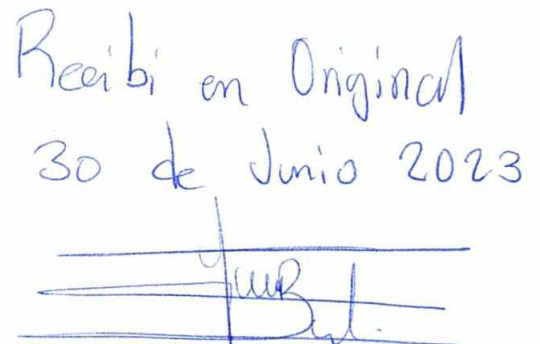 Recibi en Original
30 de Junio 2023